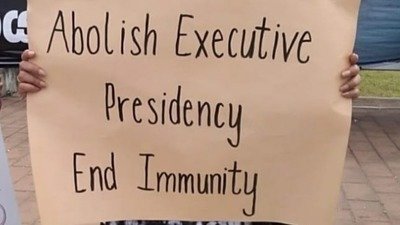 Abolish Executive
Presidency
End Immunity